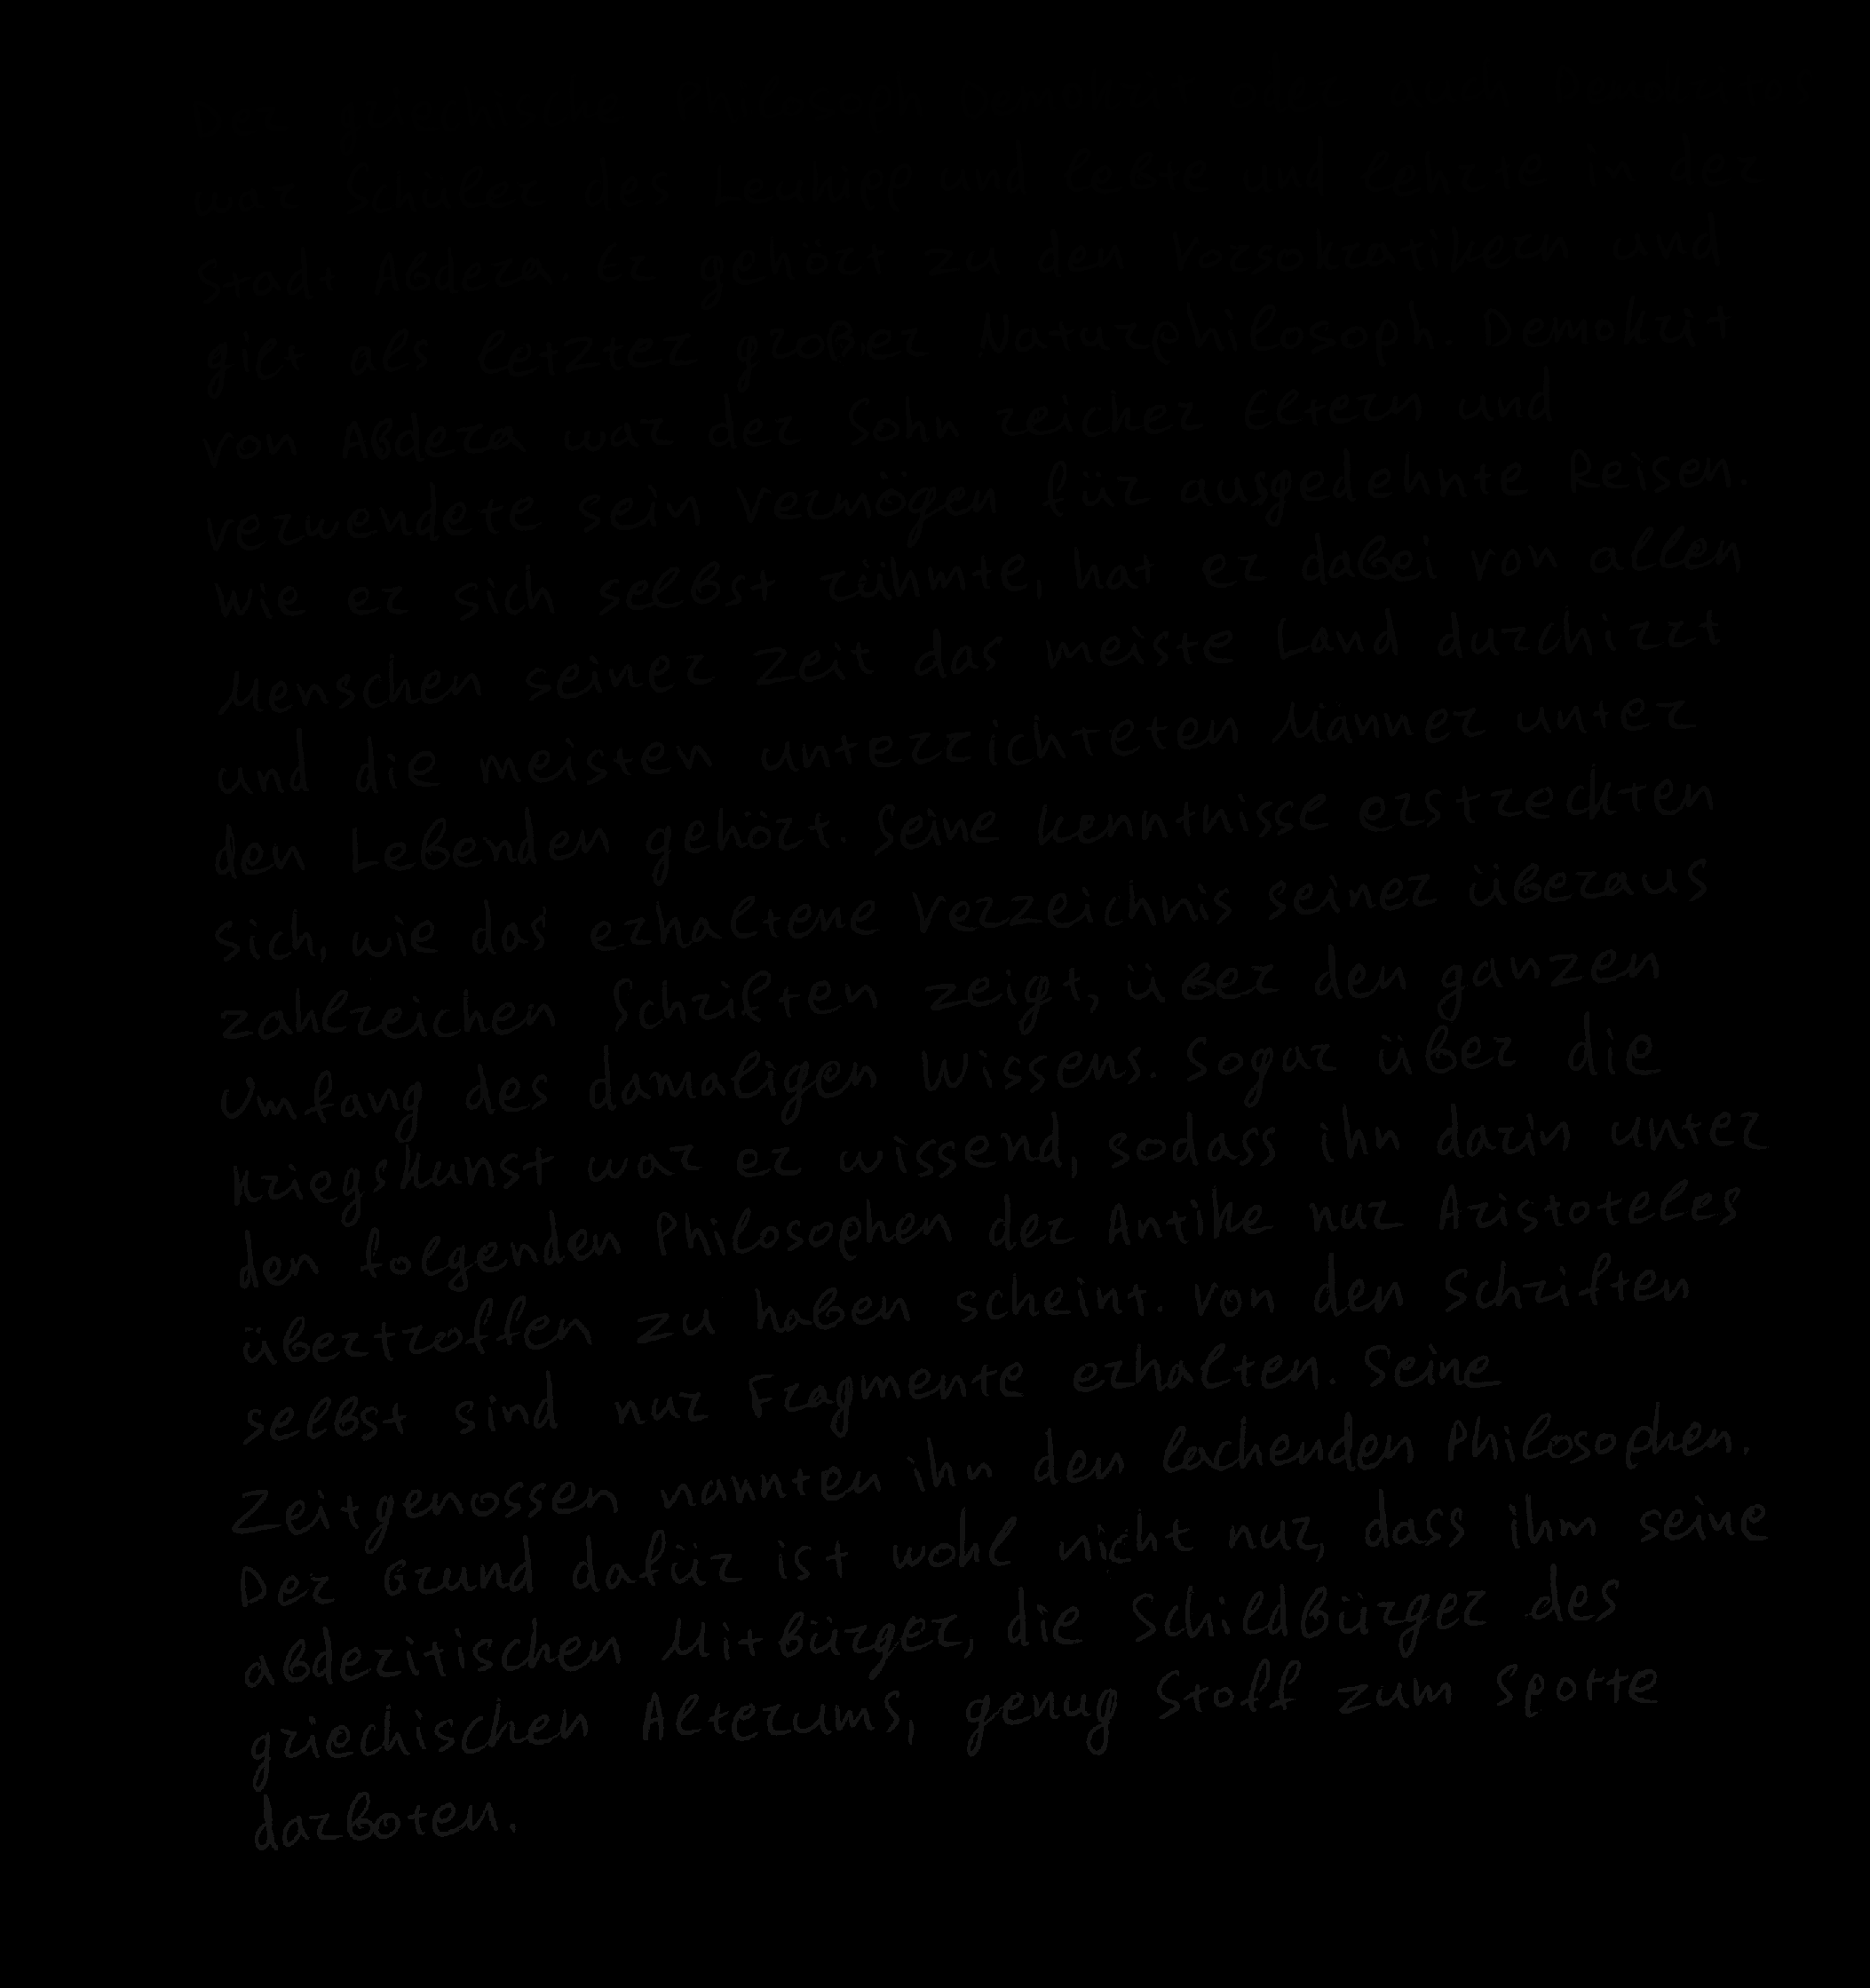 Der griechische Philosoph Demokrit oder auch Demokritos
war Schüler des Leukipp und lebte und lehrte in der
Stadt Abdera. Er gehört zu den Vorsokratikern und
gilt als letzter großer Naturphilosoph. Demokrit
von Abdera war der Sohn reicher Eltern und
verwendete sein Vermögen für ausgedehnte Reisen.
Wie er sich selbst rühmte, hat er dabei von allen
Menschen seiner Zeit das meiste Land durchirrt
und die meisten unterrichteten Männer unter
den Lebenden gehört. Seine Kenntnisse erstreckten
sich, wie das erhaltene Verzeichnis seiner überaus
zahlreichen Schriften zeigt, über den ganzen
Umfang des damaligen Wissens. Sogar über die
Kriegskunst war er wissend, sodass ihn darin unter
den folgenden Philosophen der Antike nur Aristoteles
übertroffen zu haben scheint. Von den Schriften
selbst sind nur Fragmente erhalten. Seine
Zeitgenossen nannten ihn den lachenden Philosophen.
Der Grund dafür ist wohl nicht nur, dass ihm seine
abderitischen Mitbürger, die Schildbürger des
griechischen Alterums, genug Stoff zum Spotte
darboten.